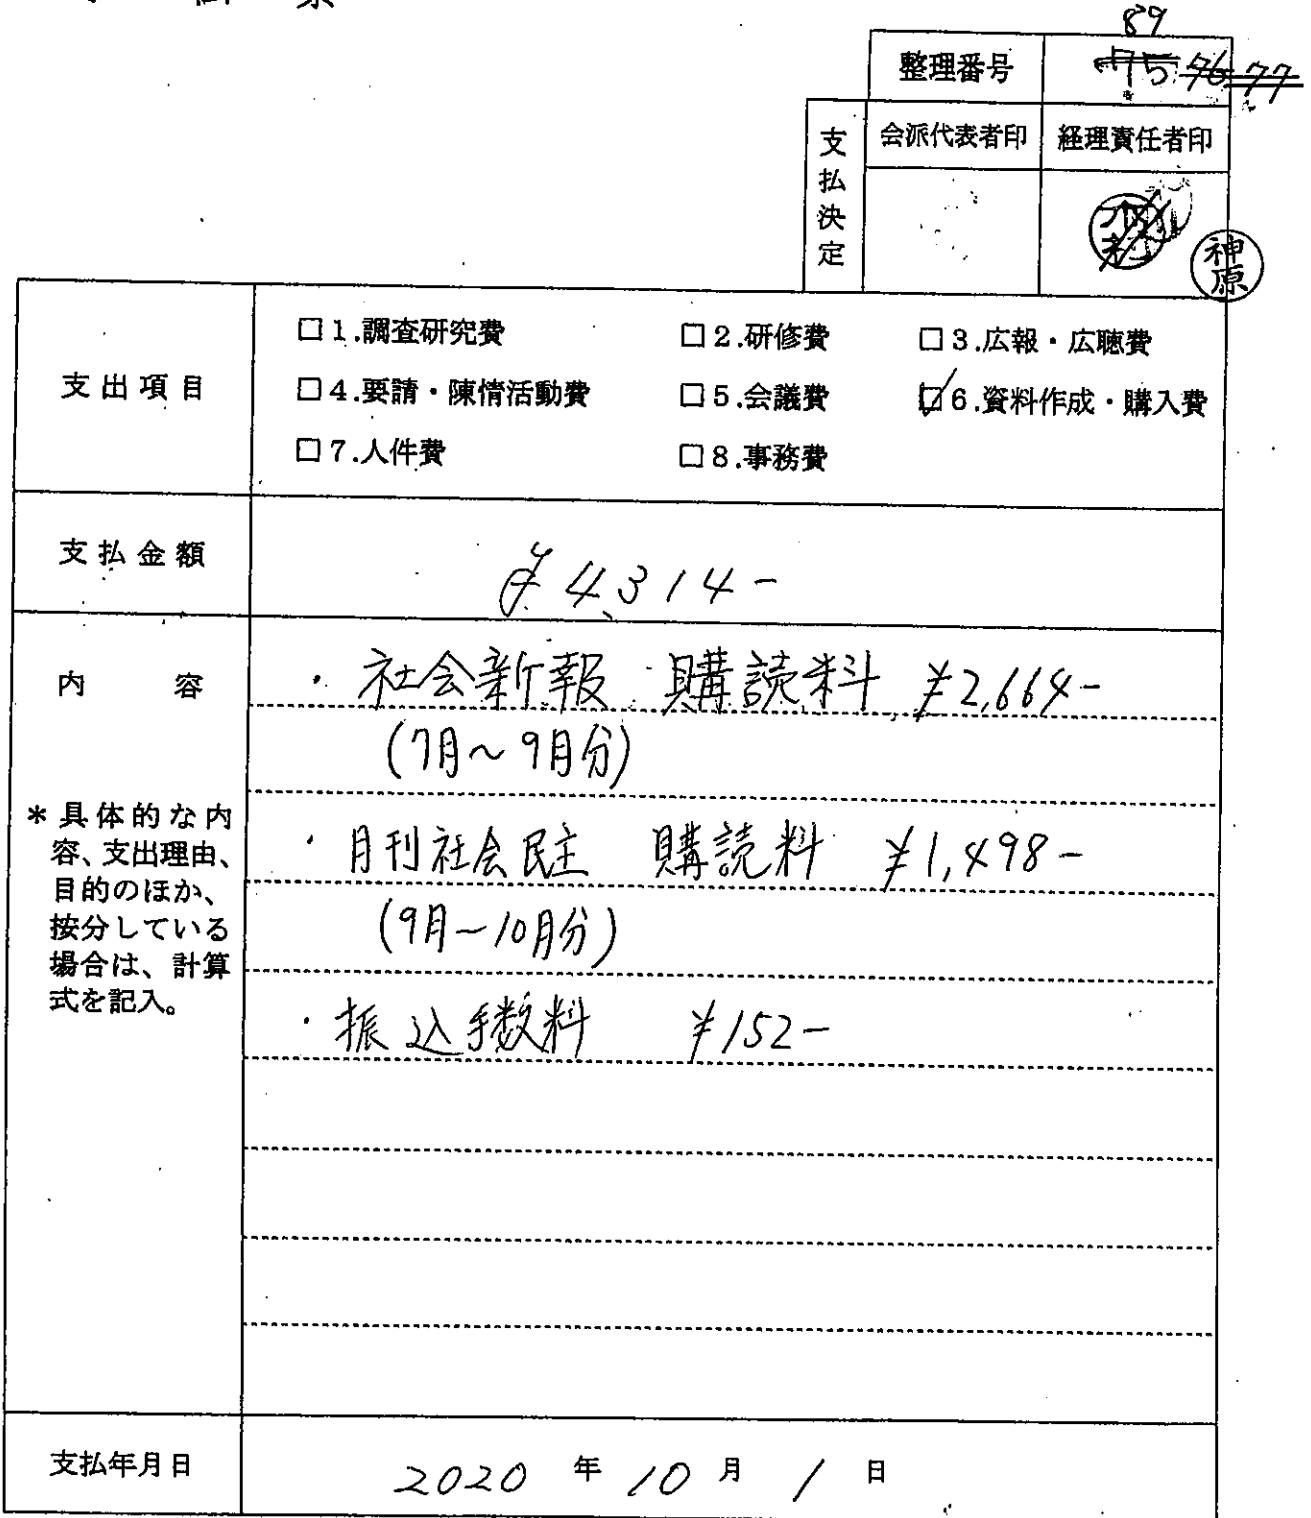 89
整理番号 75 76 77
支払決定
会派代表者印 経理責任者印
神原
支出項目
□1.調査研究費 □2.研修費 □3.広報・広聴費
□4.要請・陳情活動費 □5.会議費 ☑6.資料作成・購入費
□7.人件費 □8.事務費
支払金額
¥4,314-
内容
・社会新報 購読料 ¥2,664-
(7月~9月分)
*具体的な内
容、支出理由、
目的のほか、
按分している
場合は、計算
式を記入。
・月刊社会民主 購読料 ¥1,498-
(9月~10月分)
・振込手数料 ¥152-
支払年月日
2020年10月1日